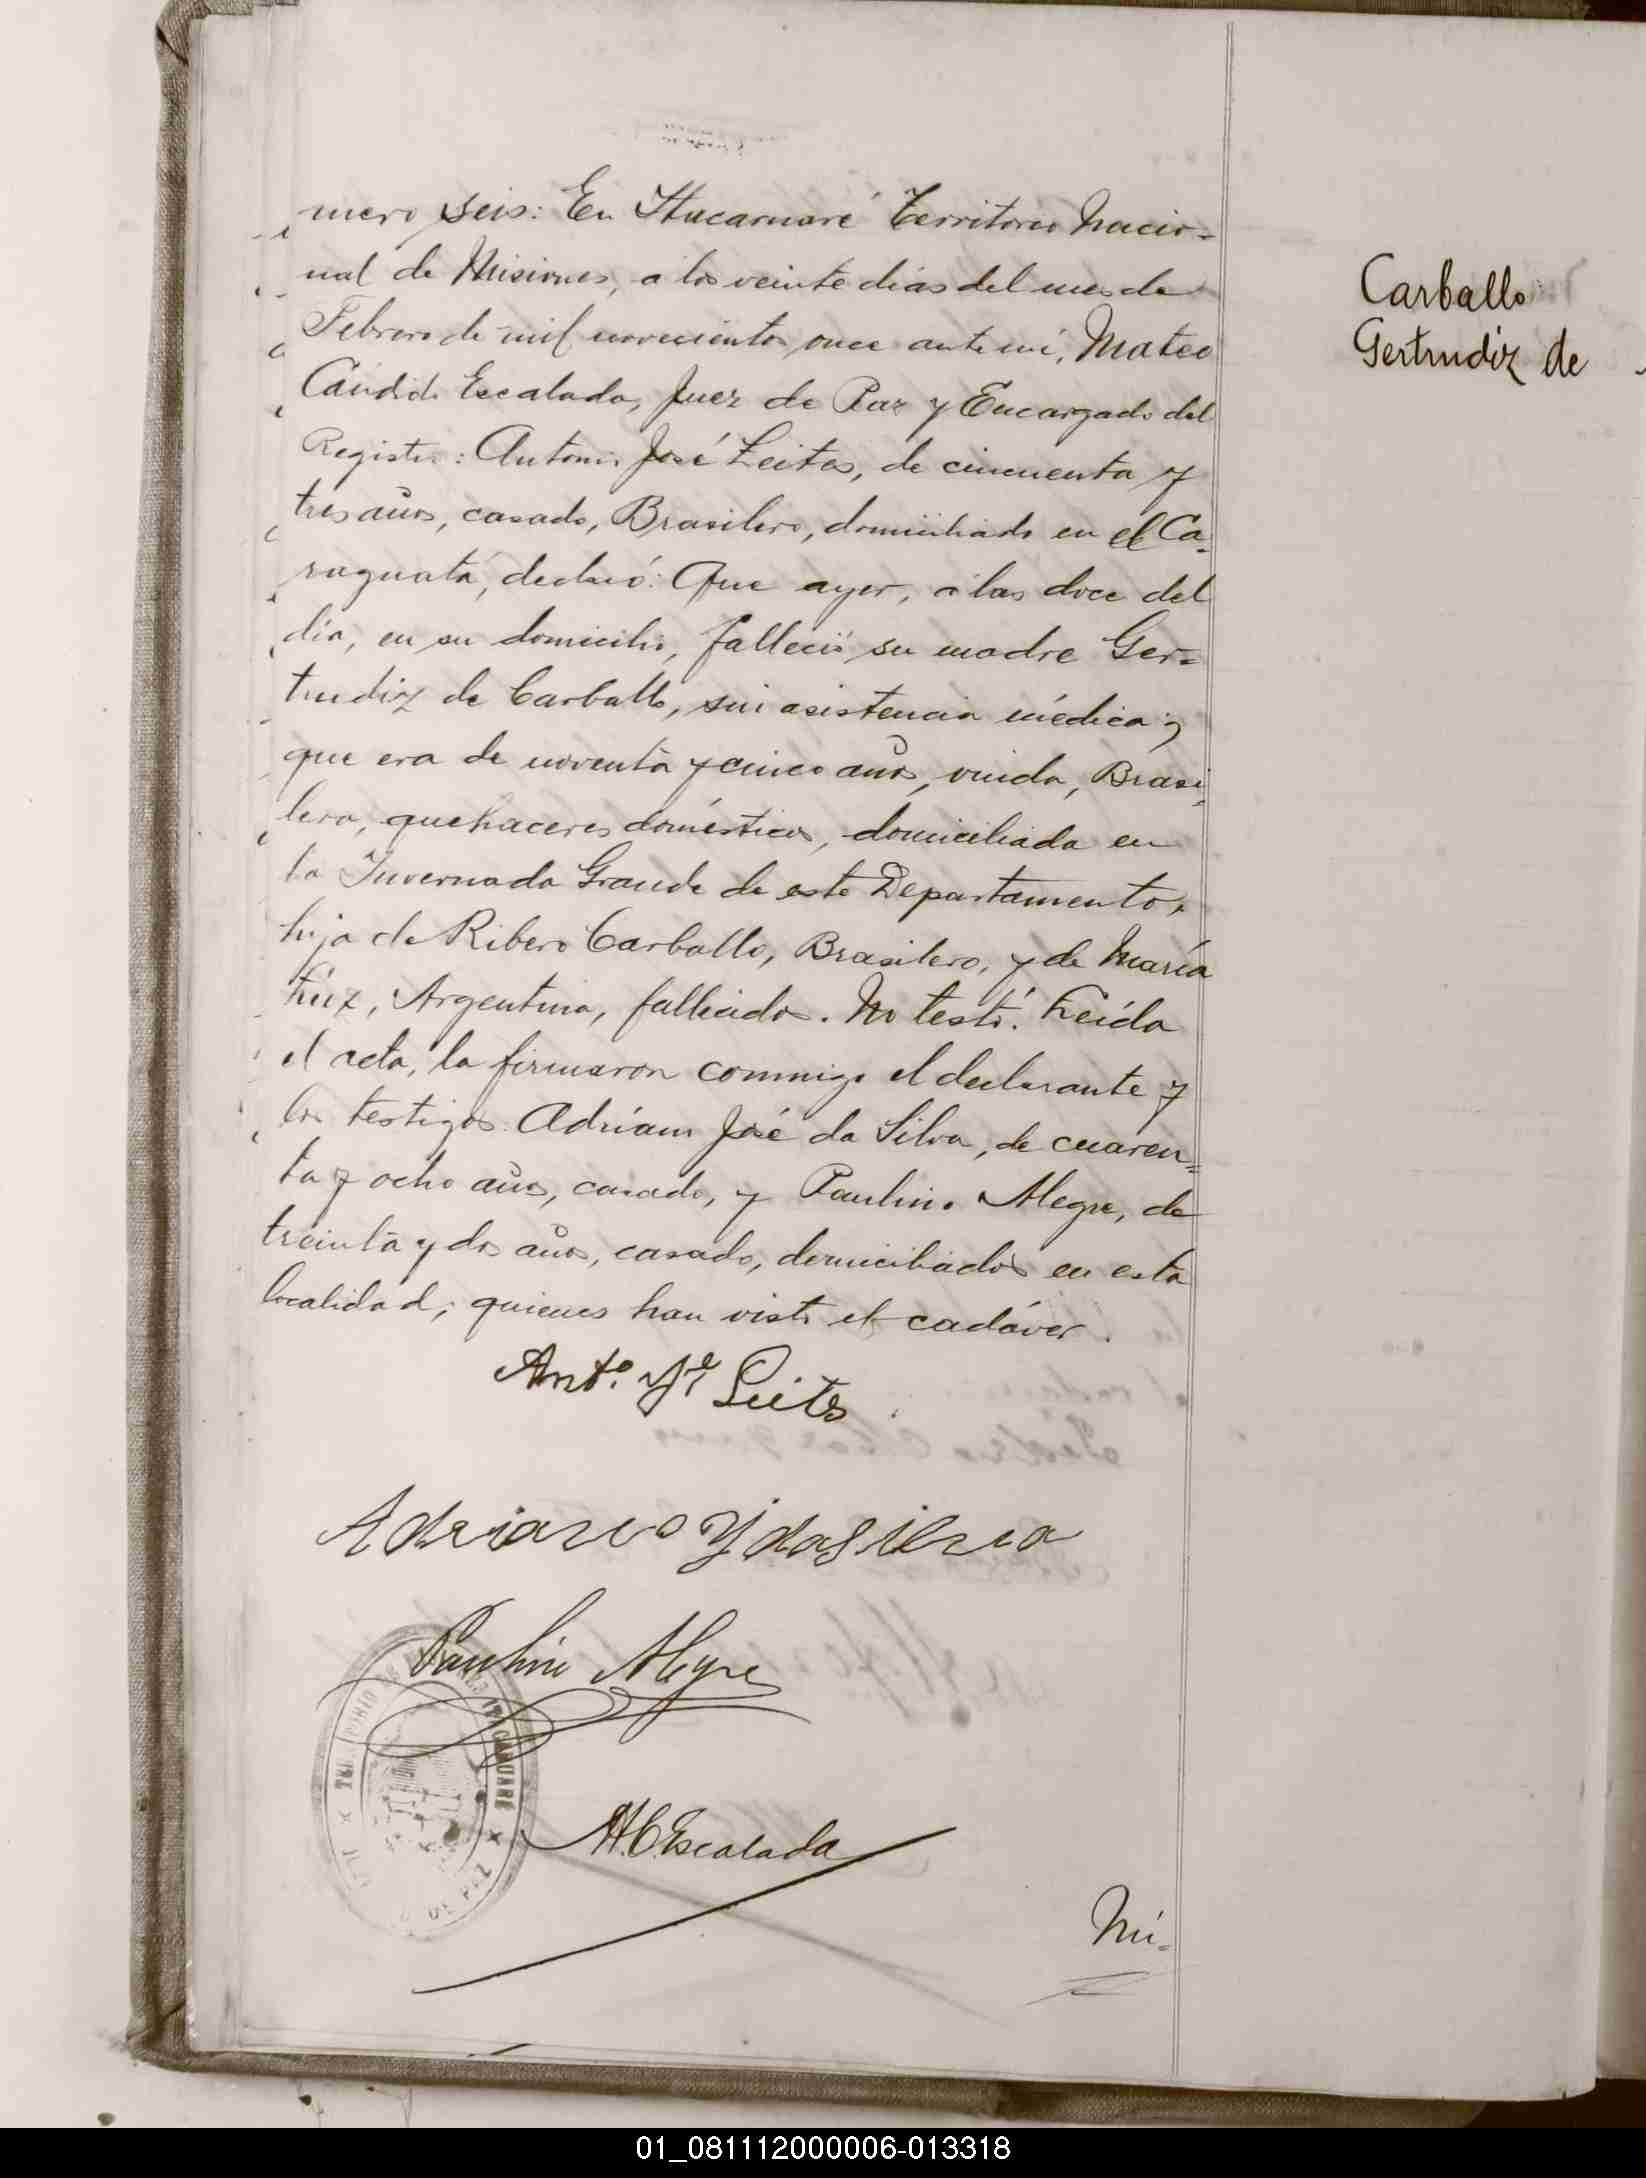 mero seis: En Itacaruaré Territorio Nacio-
nal de Misiones, a los veinte dias del mes de
Febrero de mil novecientos once ante mi, Mateo
Cándido Escalada, Juez de Paz y Encargado del
Registro: Antonio José Leites, de cincuenta y
tres años, casado, Brasilero, domiciliado en el Ca-
raguatá, declaró: Que ayer, a las doce del
dia, en su domicilio, falleció su madre Ger-
trudiz de Carballo, sin asistencia médica;
que era de noventa y cinco años, viuda, Brasi-
lera, quehaceres domésticos, domiciliada en
la Invernada Grande de este Departamento,
hija de Ribero Carballo, Brasilero, y de María
Argentina, fallecidos. No testó. Leída
el acta, la firmaron conmigo el declarante y
los testigos Adriam José da Silva, de cuaren-
ta y ocho años, casado, y Paulino Alegre, de
treinta y dos años, casado, domiciliados en esta
localidad; quienes han visto el cadáver.
Anto. Je Leites
Adriano J da Silva
Paulino Alegre
M.C.Escalada
Nú-
Carballo
Gertrudiz de
01_081112000006-013318